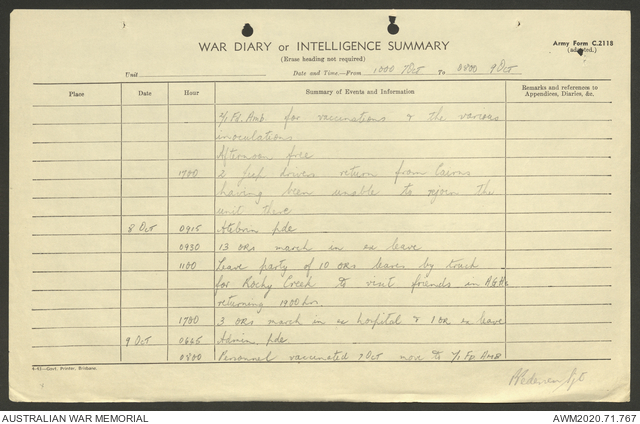 WAR DIARY or INTELLIGENCE SUMMARY
(Erase heading not required)
Army Form C.2118
(adapted.)
Unit
Date and Time—From 1000 7 Oct To 0800 9 Oct
Place Date Hour Summary of Events and Information Remarks and references to Appendices, Diaries, &c.
2/1 Fd. Amb. for vaccinations & the various
inoculations
Afternoon free
1700 2 jeep drivers return from Cairns
having been unable to rejoin the
unit there
8 Oct 0915 Atebrin pde
0930 13 ORs march in ex leave
1100 Leave party of 10 ORs leaves by truck
for Rocky Creek to visit friends in AGHs
returning 1900 hrs.
1700 3 ORs march in ex hospital & 1 OR ex leave
9 Oct 0645 Admin pde
0800 Personnel vaccinated 7 Oct move to 2/1 Fd Amb
4-43—Govt. Printer, Brisbane.
Sgt
AUSTRALIAN WAR MEMORIAL
AWM2020.71.767